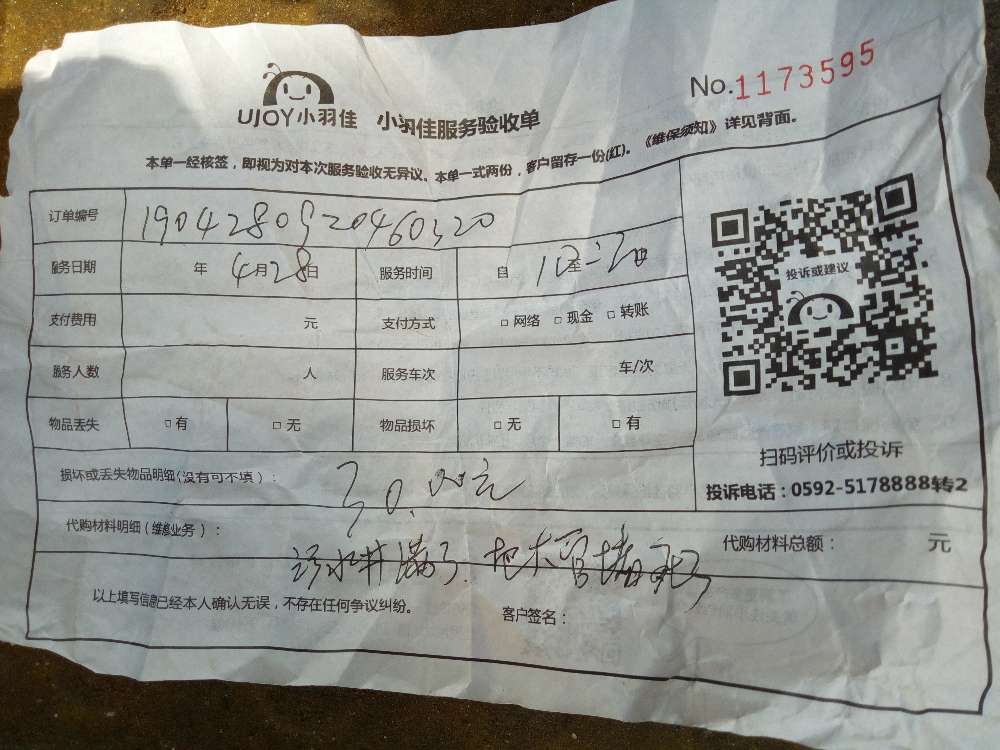 No.1173595
UJOY小羽佳 小羽佳服务验收单
本单一经核签，即视为对本次服务验收无异议。本单一式两份，客户留存一份(红)。《维保须知》详见背面。
订单编号 1904280920460320
服务日期 年 4月28日 服务时间 自 至
支付费用 元 支付方式 □ 网络 □ 现金 □ 转账
服务人数 人 服务车次 车/次
物品丢失 □ 有 □ 无 物品损坏 □ 无 □ 有
投诉或建议
扫码评价或投诉
投诉电话：0592-5178888转2
损坏或丢失物品明细(没有可不填)： 30.00元
代购材料明细(维修业务)： 代购材料总额： 元
污水井满了.
以上填写信息已经本人确认无误，不存在任何争议纠纷。 客户签名：